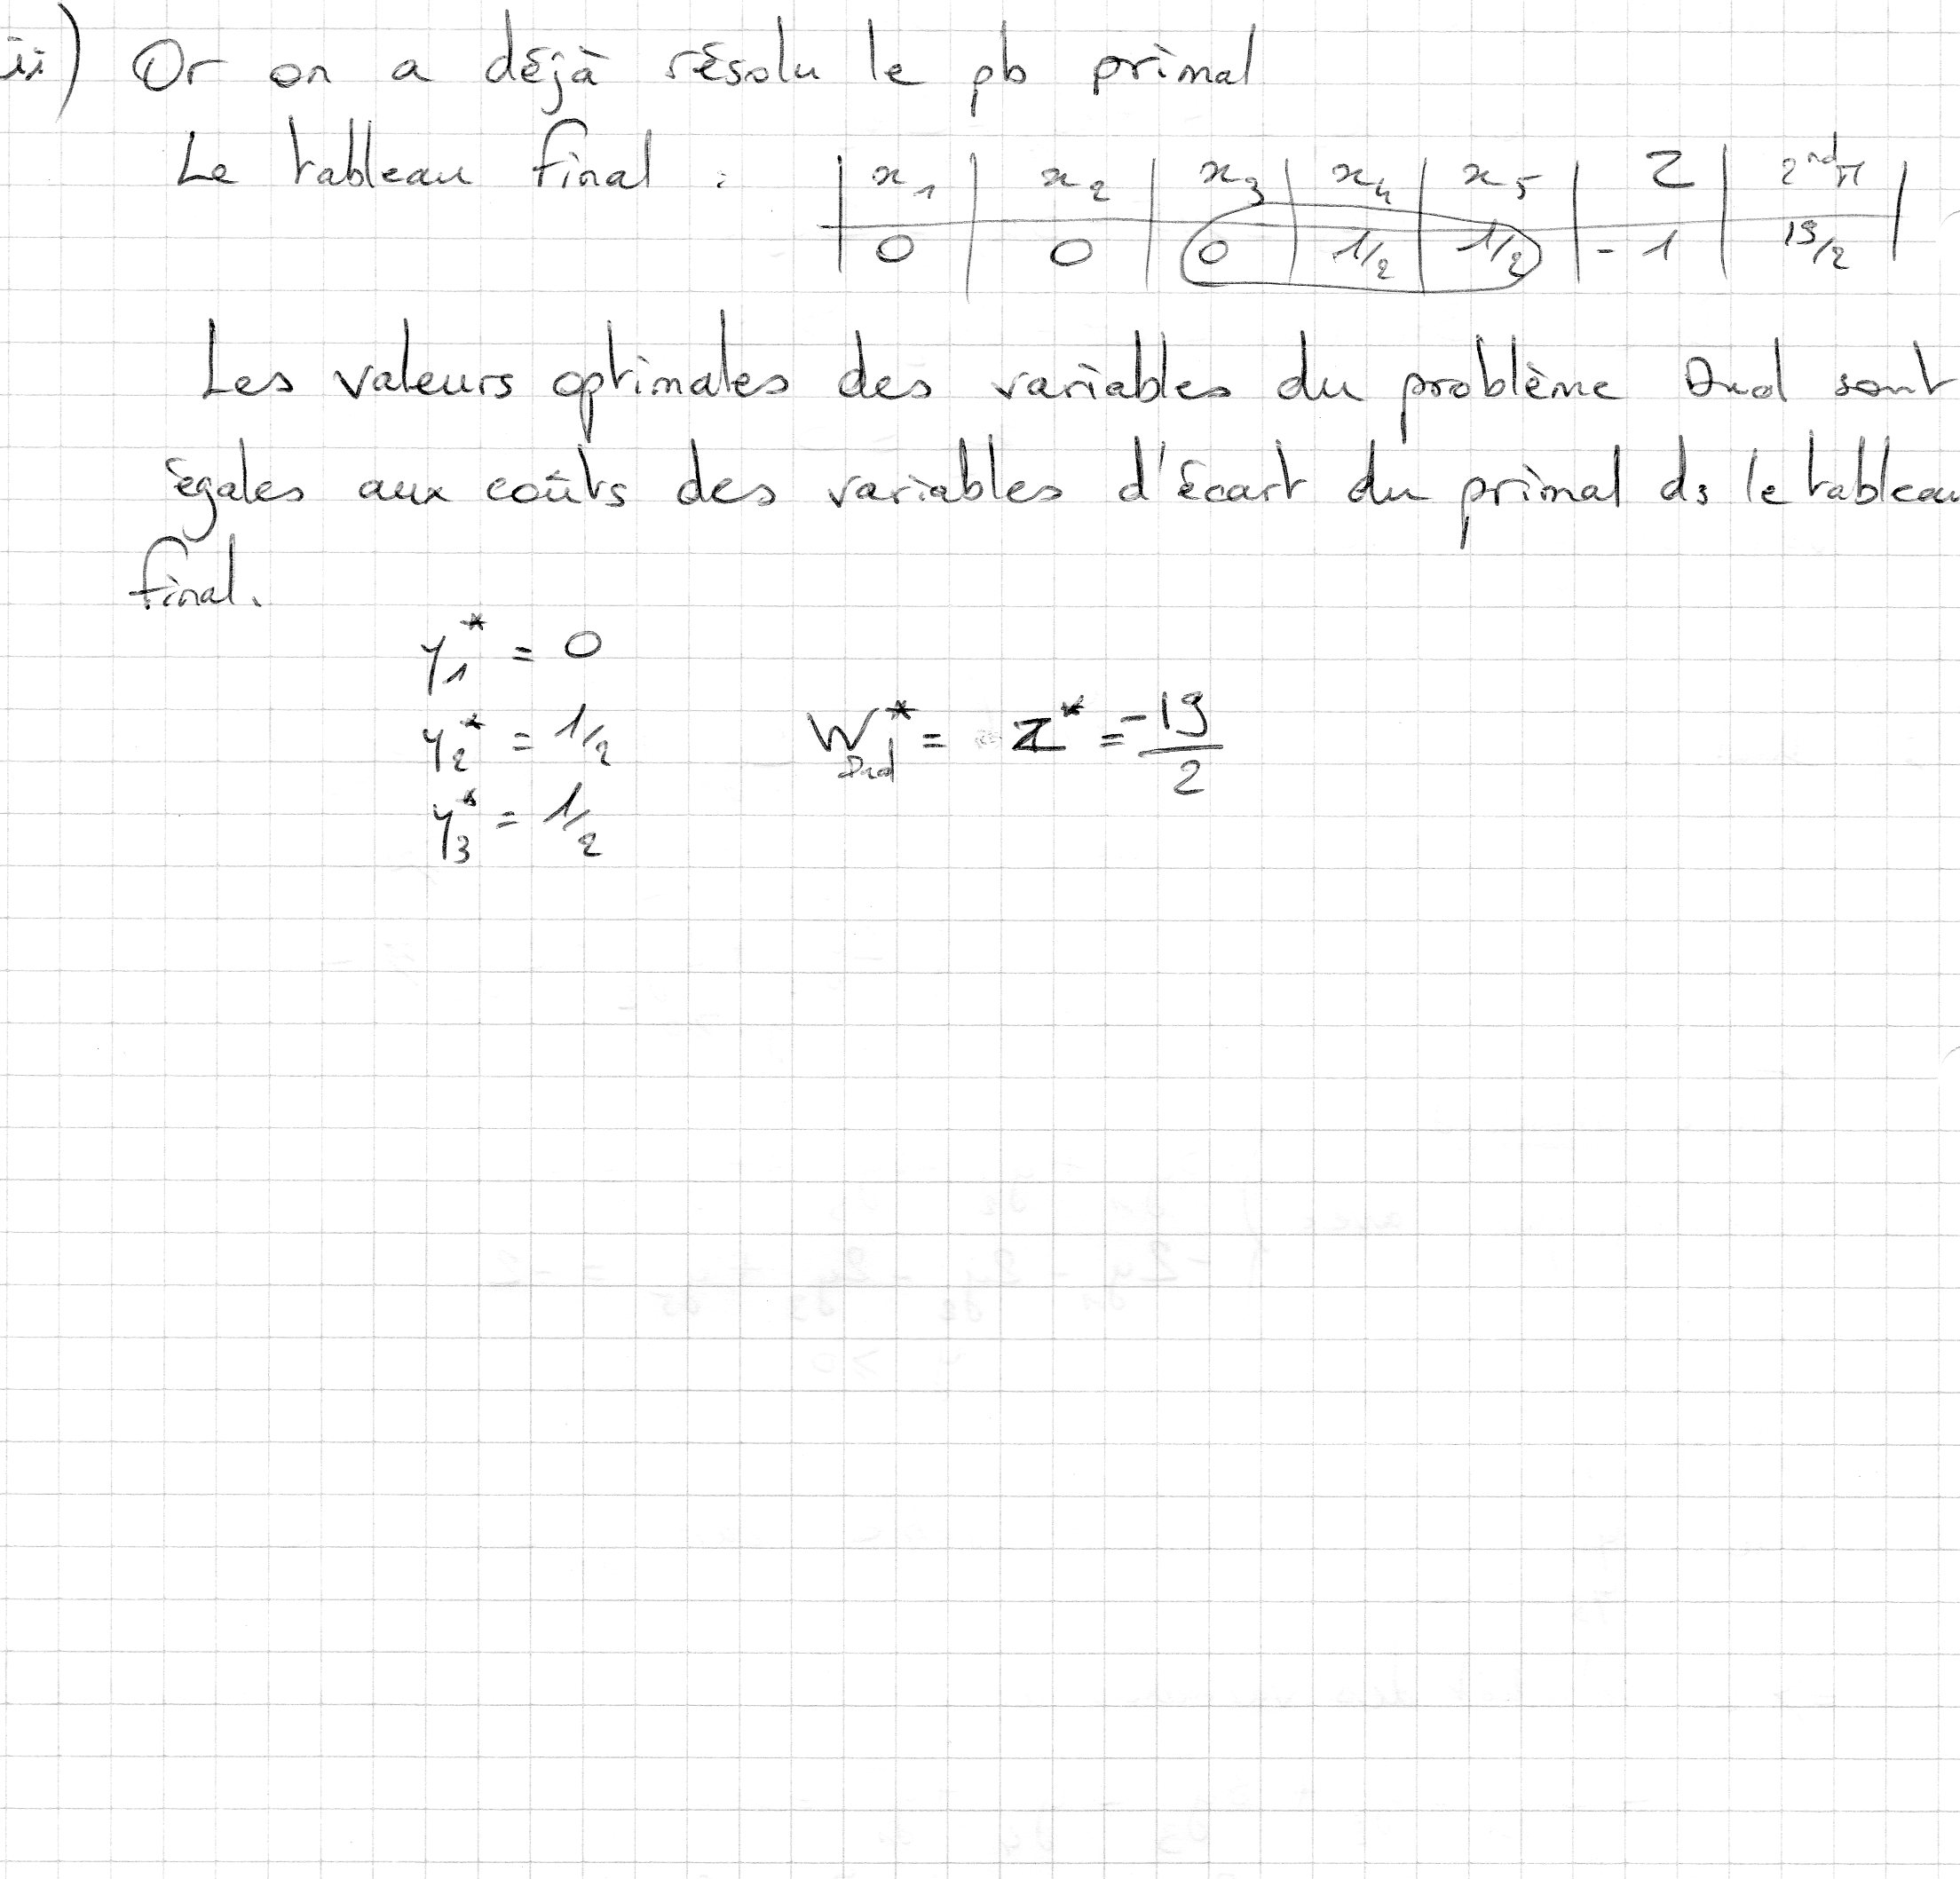 ii) Or on a déjà résolu le pb primal
Le tableau final : | x1 | x2 | x3 | x4 | x5 | Z | 2nd M |
| 0 | 0 | 0 | 1/2 | 1/2 | -1 | 19/2 |
Les valeurs optimales des variables du problème Dual sont
égales aux coûts des variables d'écart du primal ds le tableau
final.
y1* = 0
y2* = 1/2 W*Dual = Z* = -19/2
y3* = 1/2